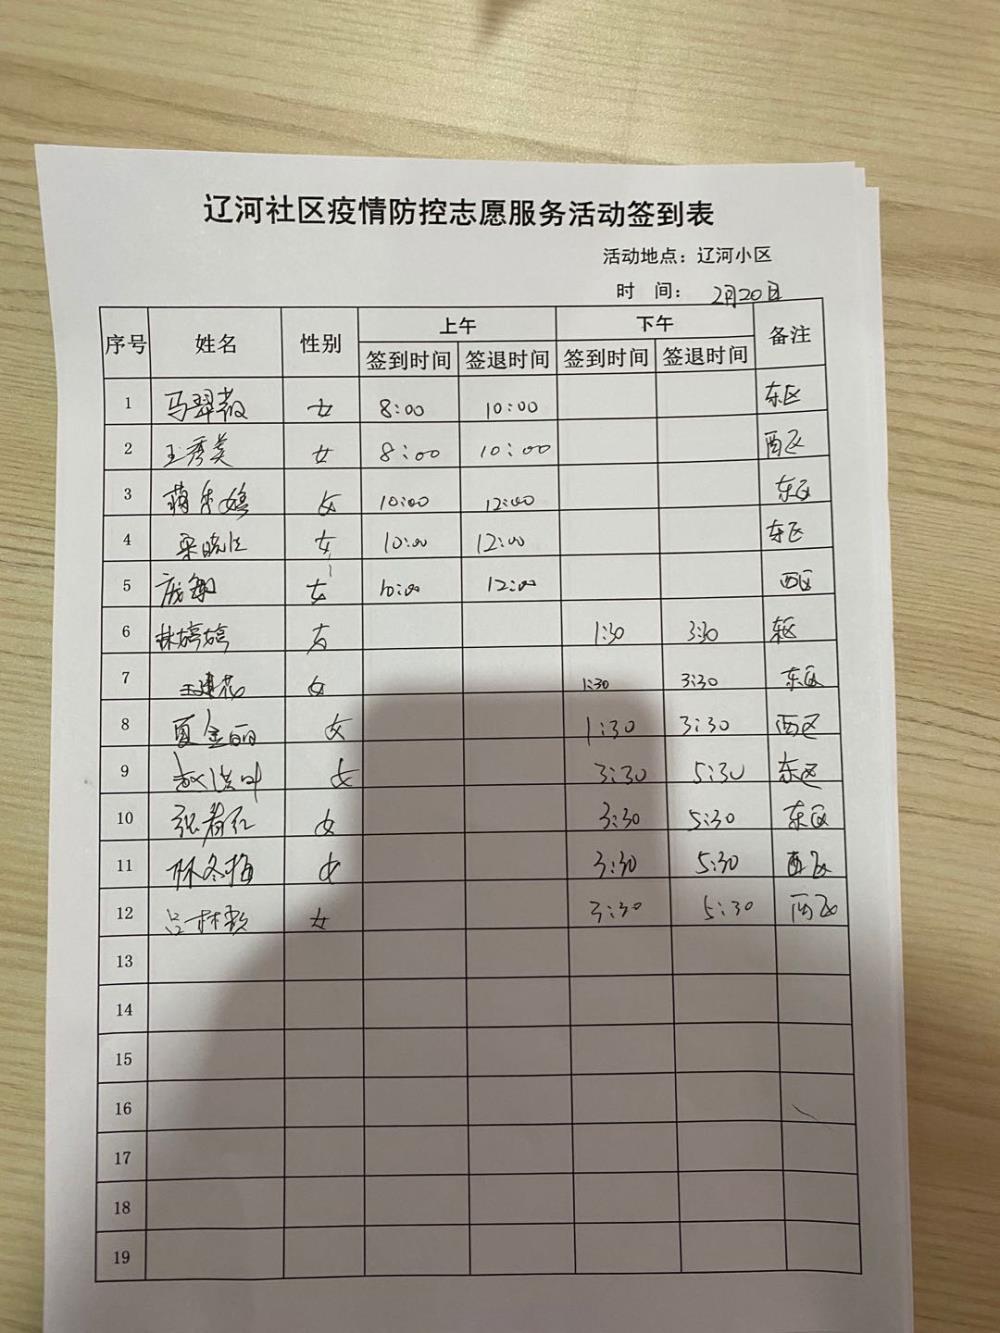 辽河社区疫情防控志愿服务活动签到表
活动地点：辽河小区
时 间： 2月20日
序号 姓名 性别 上午 下午 备注
签到时间 签退时间 签到时间 签退时间
1 马翠 女 8:00 10:00 东区
2 王秀英 女 8:00 10:00 西区
3 女 10:00 12:00 东区
4 梁晓 女 10:00 12:00 东区
5 女 10:00 12:00 西区
6 林婷婷 女 1:30 3:30 东区
7 王建花 女 1:30 3:30 东区
8 夏金丽 女 1:30 3:30 西区
9 女 3:30 5:30 东区
10 张春红 女 3:30 5:30 东区
11 林冬梅 女 3:30 5:30 西区
12 吕林 女 3:30 5:30 西区
13
14
15
16
17
18
19